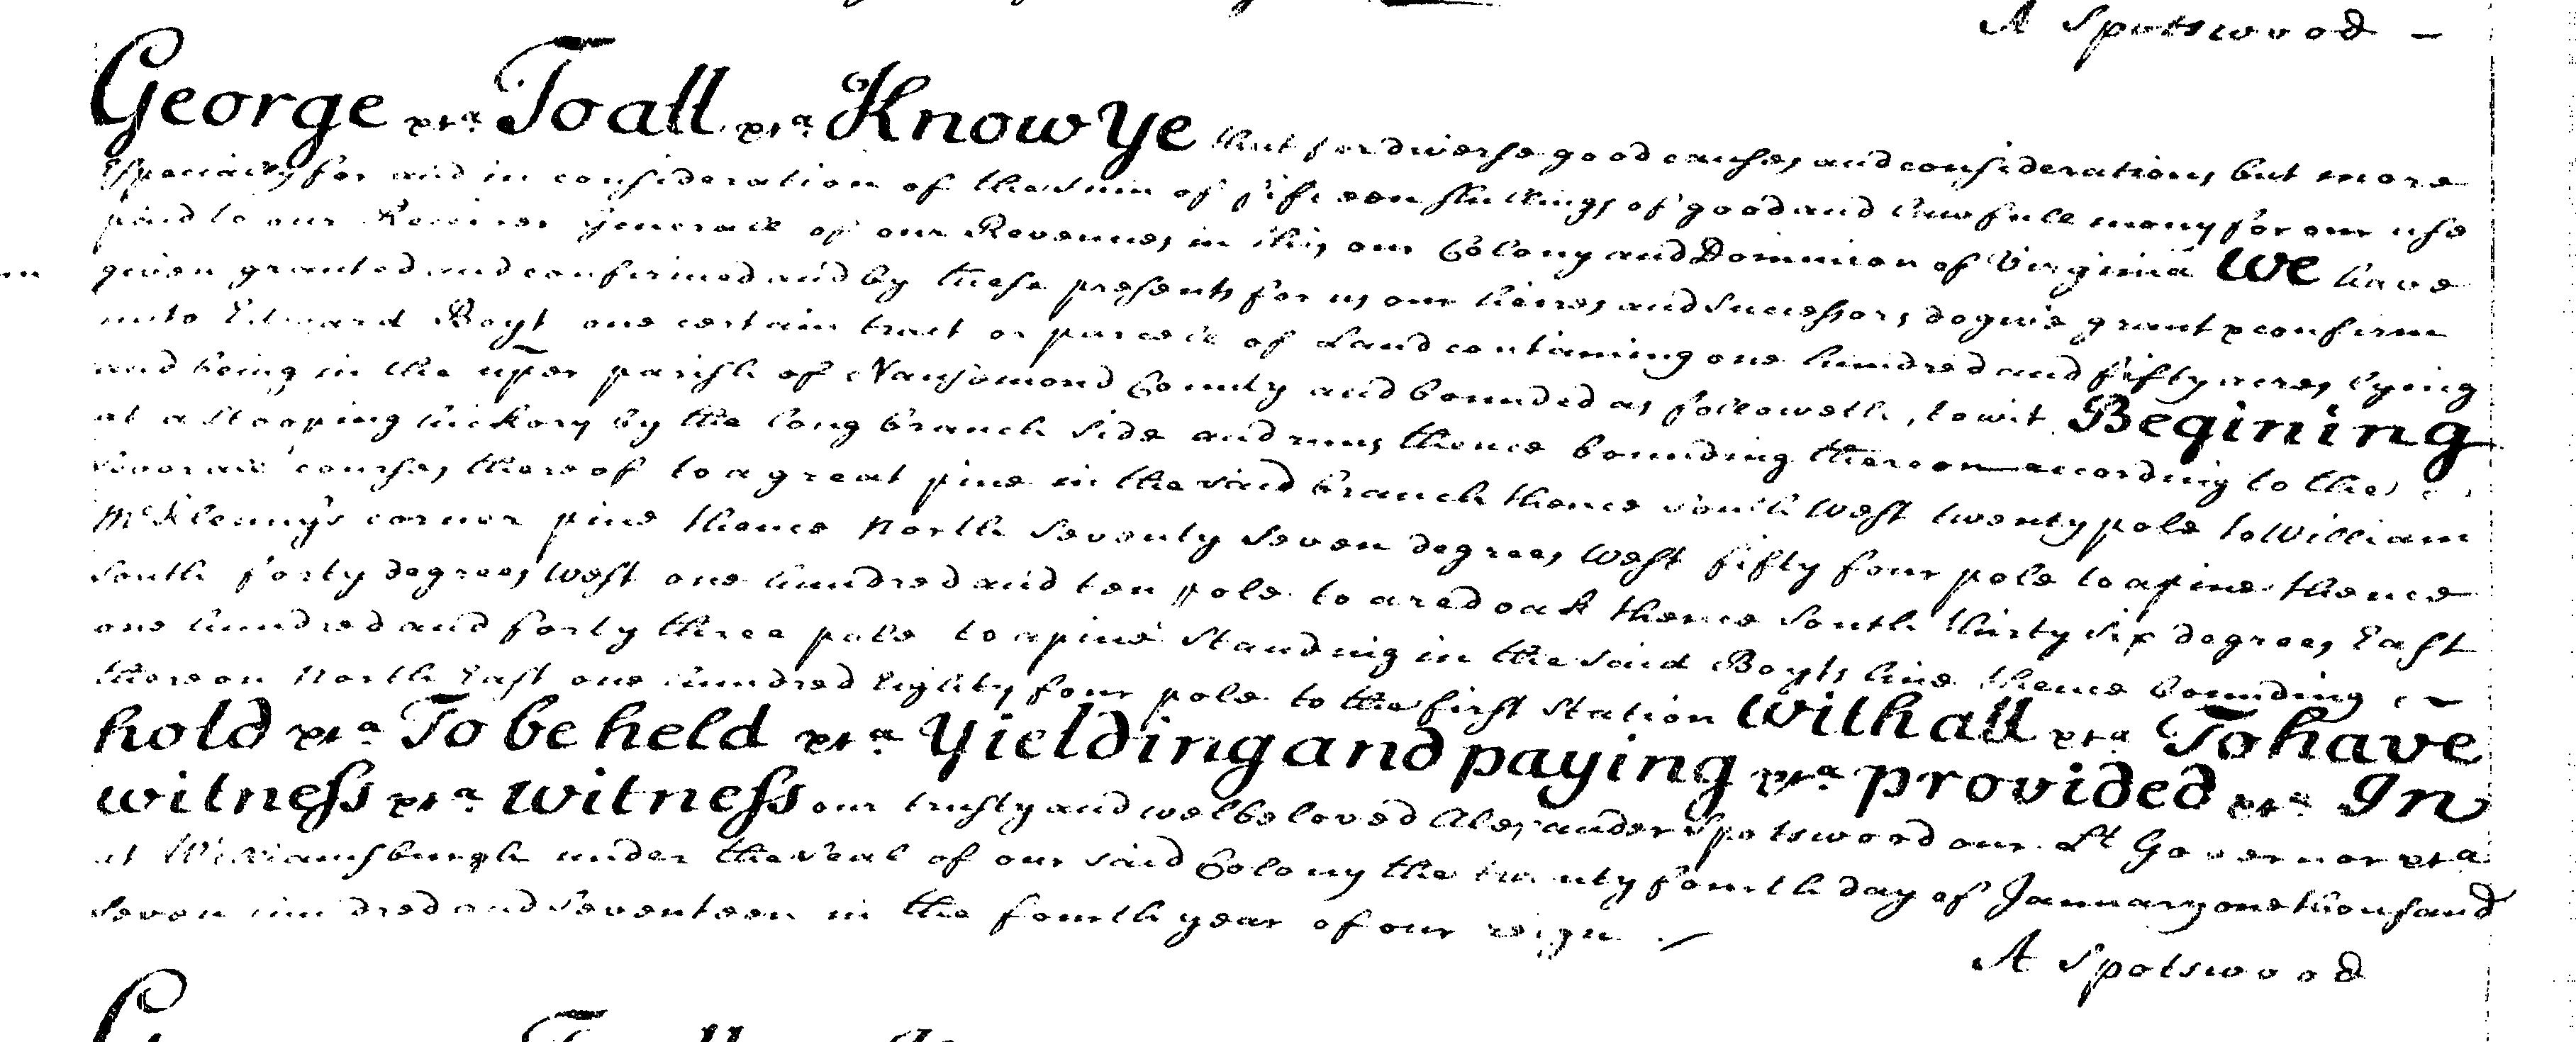 A Spotswood
George &ca To all &ca Know Ye that for diverse good causes and considerations but more
Especially for and in consideration of the sum of fifteen shillings of good and lawfull mony for our use
paid to our Receiver Generall of our Revenues in this our Colony and Dominion of Virginia We have
given granted and confirmed and by these presents for us our heires and successors do give grant & confirm
unto Edward Boyt one certain tract or parcell of Land containing one hundred and fifty acres lying
and being in the uper parish of Nansemond County and bounded as followeth, to wit Begining
at a stooping hickory by the long branch side and runs thence bounding thereon according to the
severall courses thereof to a great pine in the said branch thence South West twenty pole to William
McKlenny's corner pine thence North Seventy Seven degrees West fifty four pole to a pine thence
South forty degrees West one hundred and ten pole to a red oak thence South thirty six degrees East
one hundred and forty three pole to a pine standing in the said Boyts line thence bounding
thereon North East one hundred Eighty four pole to the first station With all &ca To have
hold &ca To be held &ca Yielding and paying &ca provided &ca In
witness &ca Witness our trusty and welbeloved Alexander Spotswood our Lt Governor &ca
at Williamsburgh under the seal of our said Colony the twenty fourth day of January one thousand
Seven hundred and Seventeen in the fourth year of our reign
A Spotswood